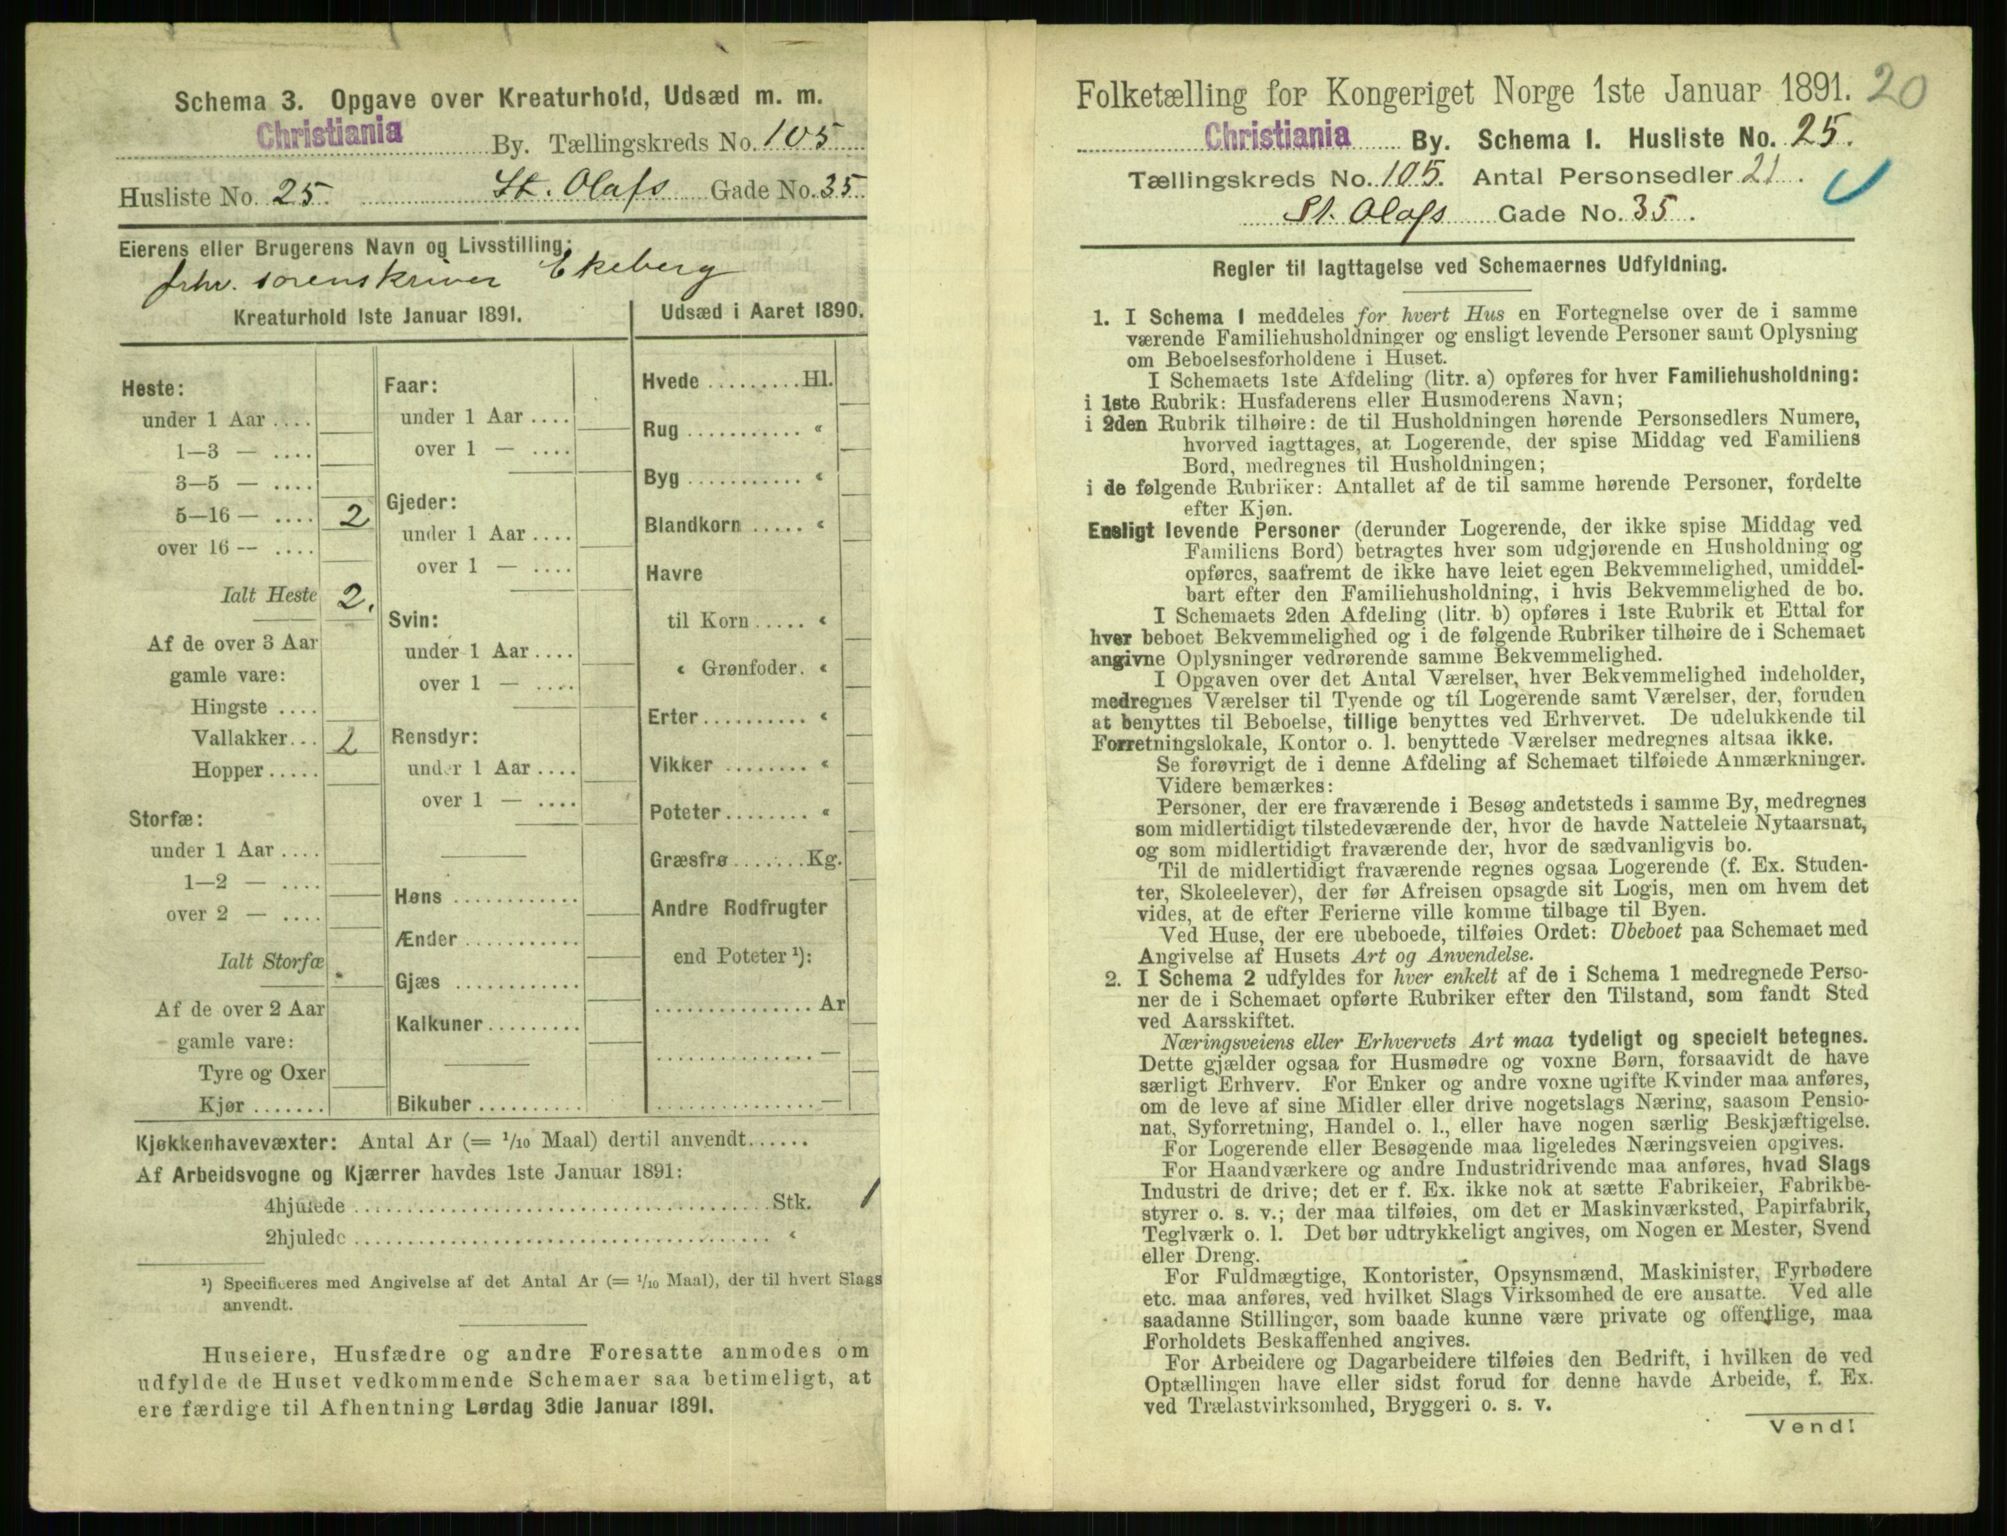 Schema 3. Opgave over Kreaturhold, Udsæd m. m.
Christiania By. Tællingskreds No. 105
Husliste No. 25. St. Olafs Gade No. 35
Eierens eller Brugerens Navn og Livsstilling:
fhv. sorenskriver Ekeberg
Kreaturhold 1ste Januar 1891.
Heste:
under 1 Aar ....
1—3 — ....
3—5 — ....
5—16 — .... 2
over 16 — ....
Ialt Heste 2.
Af de over 3 Aar
gamle vare:
Hingste ....
Vallakker... 2
Hopper.....
Storfæ:
under 1 Aar ....
1—2 — ....
over 2 — ....
Ialt Storfæ
Af de over 2 Aar
gamle vare:
Tyre og Oxer
Kjør .......
Faar:
under 1 Aar ....
over 1 — ....
Gjeder:
under 1 Aar ....
over 1 — ....
Svin:
under 1 Aar ....
over 1 — ....
Rensdyr:
under 1 Aar ....
over 1 — ....
Høns ............
Ænder ...........
Gjæs ............
Kalkuner.........
Bikuber ..........
Udsæd i Aaret 1890.
Hvede .........Hl.
Rug ........... «
Byg ........... «
Blandkorn ..... «
Havre
til Korn ..... «
« Grønfoder. «
Erter.......... «
Vikker ........ «
Poteter........ «
Græsfrø.......Kg.
Andre Rodfrugter
end Poteter ¹):
............... Ar
............... —
............... —
Kjøkkenhavevæxter: Antal Ar (= 1/10 Maal) dertil anvendt......
Af Arbeidsvogne og Kjærrer havdes 1ste Januar 1891:
4hjulede ....................................... Stk. 1
2hjulede ....................................... «
¹) Specificeres med Angivelse af det Antal Ar (= 1/10 Maal), der til hvert Slags
anvendt.
Huseiere, Husfædre og andre Foresatte anmodes om
udfylde de Huset vedkommende Schemaer saa betimeligt, at
ere færdige til Afhentning Lørdag 3die Januar 1891.
Folketælling for Kongeriget Norge 1ste Januar 1891. 20
Christiania By. Schema I. Husliste No. 25.
Tællingskreds No. 105. Antal Personsedler 21.
St. Olafs Gade No. 35.
Regler til Iagttagelse ved Schemaernes Udfyldning.
1. I Schema 1 meddeles for hvert Hus en Fortegnelse over de i samme
værende Familiehusholdninger og ensligt levende Personer samt Oplysning
om Beboelsesforholdene i Huset.
I Schemaets 1ste Afdeling (litr. a) opføres for hver Familiehusholdning:
i 1ste Rubrik: Husfaderens eller Husmoderens Navn;
i 2den Rubrik tilhøire: de til Husholdningen hørende Personsedlers Numere,
hvorved iagttages, at Logerende, der spise Middag ved Familiens
Bord, medregnes til Husholdningen;
i de følgende Rubriker: Antallet af de til samme hørende Personer, fordelte
efter Kjøn.
Ensligt levende Personer (derunder Logerende, der ikke spise Middag ved
Familiens Bord) betragtes hver som udgjørende en Husholdning og
opføres, saafremt de ikke have leiet egen Bekvemmelighed, umiddel-
bart efter den Familiehusholdning, i hvis Bekvemmelighed de bo.
I Schemaets 2den Afdeling (litr. b) opføres i 1ste Rubrik et Ettal for
hver beboet Bekvemmelighed og i de følgende Rubriker tilhøire de i Schemaet
angivne Oplysninger vedrørende samme Bekvemmelighed.
I Opgaven over det Antal Værelser, hver Bekvemmelighed indeholder,
medregnes Værelser til Tyende og til Logerende samt Værelser, der, foruden
at benyttes til Beboelse, tillige benyttes ved Erhvervet. De udelukkende til
Forretningslokale, Kontor o. l. benyttede Værelser medregnes altsaa ikke.
Se forøvrigt de i denne Afdeling af Schemaet tilføiede Anmærkninger.
Videre bemærkes:
Personer, der ere fraværende i Besøg andetsteds i samme By, medregnes
som midlertidigt tilstedeværende der, hvor de havde Natteleie Nytaarsnat,
og som midlertidigt fraværende der, hvor de sædvanligvis bo.
Til de midlertidigt fraværende regnes ogsaa Logerende (f. Ex. Studen-
ter, Skoleelever), der før Afreisen opsagde sit Logis, men om hvem det
vides, at de efter Ferierne ville komme tilbage til Byen.
Ved Huse, der ere ubeboede, tilføies Ordet: Ubeboet paa Schemaet med
Angivelse af Husets Art og Anvendelse.
2. I Schema 2 udfyldes for hver enkelt af de i Schema 1 medregnede Perso-
ner de i Schemaet opførte Rubriker efter den Tilstand, som fandt Sted
ved Aarsskiftet.
Næringsveiens eller Erhvervets Art maa tydeligt og specielt betegnes.
Dette gjælder ogsaa for Husmødre og voxne Børn, forsaavidt de have
særligt Erhverv. For Enker og andre voxne ugifte Kvinder maa anføres,
om de leve af sine Midler eller drive nogetslags Næring, saasom Pensio-
nat, Syforretning, Handel o. l., eller have nogen særlig Beskjæftigelse.
For Logerende eller Besøgende maa ligeledes Næringsveien opgives.
For Haandværkere og andre Industridrivende maa anføres, hvad Slags
Industri de drive; det er f. Ex. ikke nok at sætte Fabrikeier, Fabrikbe-
styrer o. s. v.; der maa tilføies, om det er Maskinværksted, Papirfabrik,
Teglværk o. l. Det bør udtrykkeligt angives, om Nogen er Mester, Svend
eller Dreng.
For Fuldmægtige, Kontorister, Opsynsmænd, Maskinister, Fyrbødere
etc. maa anføres, ved hvilket Slags Virksomhed de ere ansatte. Ved alle
saadanne Stillinger, som baade kunne være private og offentlige, maa
Forholdets Beskaffenhed angives.
For Arbeidere og Dagarbeidere tilføies den Bedrift, i hvilken de ved
Optællingen have eller sidst forud for denne havde Arbeide, f. Ex.
ved Trælastvirksomhed, Bryggeri o. s. v.
Vend!